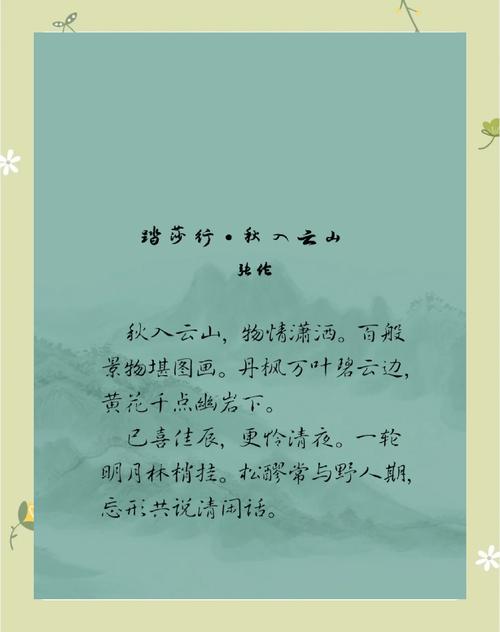 踏莎行·秋入云山
张伦
秋入云山，物情潇洒。百般
景物堪图画。丹枫万叶碧云边，
黄花千点幽岩下。
已喜佳辰，更怜清夜。一轮
明月林梢挂。松醪常与野人期，
忘形共说清闲话。